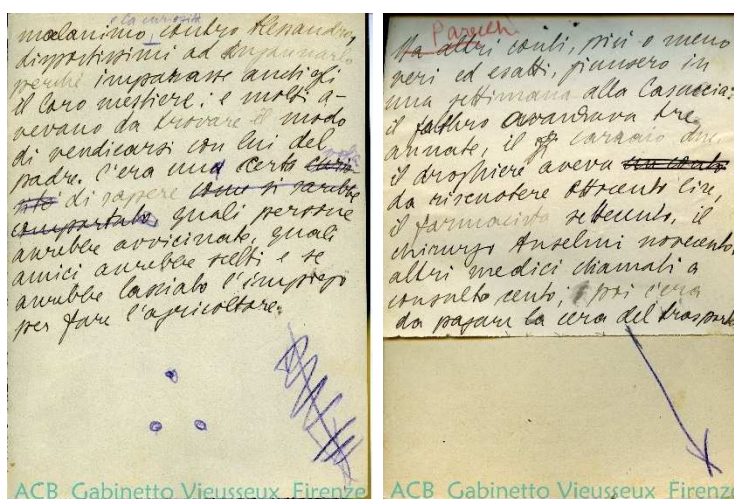 e la curiosità
malanimo, contro Alessandro,
dispostissimi ad ingannarlo
perché imparasse anch'egli
il loro mestiere; e molti a-
vevano da trovare il modo
di vendicarsi con lui del
padre. C'era una certa curio
sità di sapere come si sarebbe
comportato, quali persone
avrebbe avvicinate, quali
amici avrebbe scelti e se
avrebbe lasciato l'impiego
per fare l'agricoltore.
ACB Gabinetto Vieusseux Firenze
Parecchi
Ma altri conti, più o meno
veri ed esatti, giunsero in
una settimana alla Casuccia:
il fabbro avanzava tre
annate, il carraio due
il droghiere aveva
da riscuotere ottocento lire,
il farmacista settecento, il
chirurgo Anselmi novecento,
altri medici chiamati a
consulto cento; poi c'era
da pagare la cera del trasporto
ACB Gabinetto Vieusseux Firenze